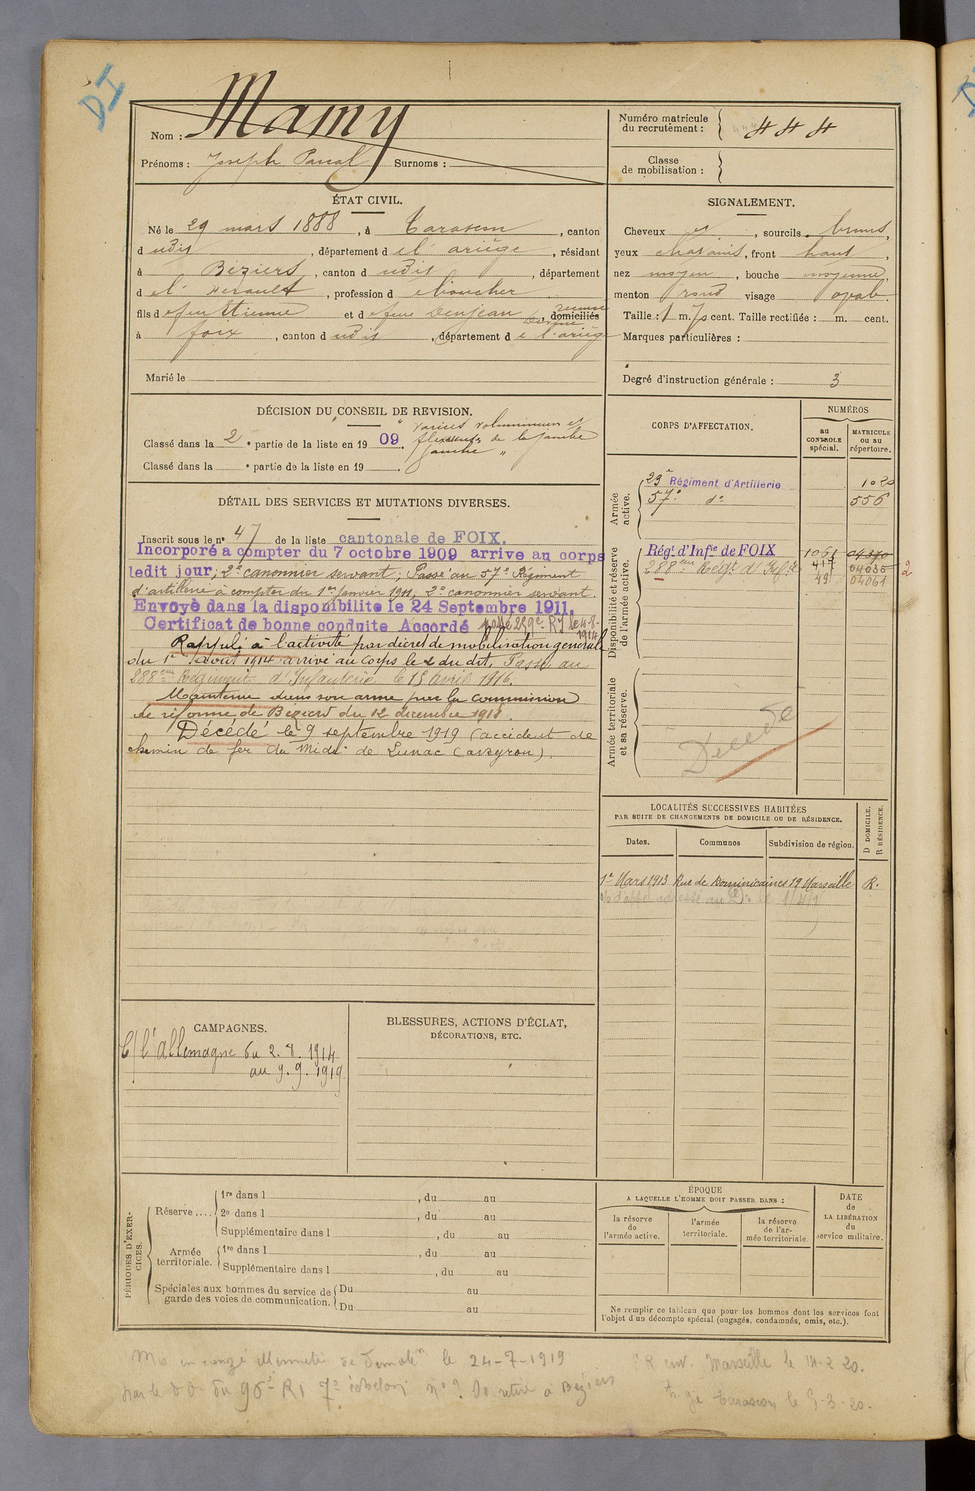 DI
Nom : Mamy
Prénoms : Joseph Pascal Surnoms :
Numéro matricule du recrutement : 444
Classe de mobilisation :
ÉTAT CIVIL.
Né le 29 mars 1888, à Tarascon, canton
dudit, département de l'ariège, résidant
à Béziers, canton dudit, département
de l'Hérault, profession de boucher
fils de feu Etienne et de feue Denjean, domiciliés
à foix, canton dudit, département de l'ariège
Marié le
SIGNALEMENT.
Cheveux et, sourcils bruns,
yeux chatains, front haut,
nez moyen, bouche moyenne,
menton rond visage oval.
Taille : 1 m. 70 cent. Taille rectifiée : m. cent.
Marques particulières :
Degré d'instruction générale : 3
DÉCISION DU CONSEIL DE REVISION.
Classé dans la 2e partie de la liste en 1909. varices volumineuses et
de la jambe
jambe "
Classé dans la e partie de la liste en 19
DÉTAIL DES SERVICES ET MUTATIONS DIVERSES.
Inscrit sous le n° 47 de la liste cantonale de FOIX.
Incorporé a compter du 7 octobre 1909 arrive au corps
ledit jour; 2e canonnier servant; Passé au 57e Régiment
d'artillerie à compter du 1er janvier 1911, 2e canonnier servant.
Envoyé dans la disponibilite le 24 Septembre 1911.
Certificat de bonne conduite Accordé
Rappelé à l'activité par décret de mobilisation générale
du 1er Août 1914 arrivé au corps le 2 du dit. Passé au
288eme Régiment d'Infanterie le 15 avril 1916.
Maintenu dans son arme par la Commission
de réforme de Béziers du 12 décembre 1918.
Décédé le 9 septembre 1919 (accident de
chemin de fer du Midi de Lunac (aveyron).
CORPS D'AFFECTATION.
NUMÉROS
au CONTROLE spécial.
MATRICULE ou au répertoire.
Armée active.
23e Régiment d'Artillerie 1020
57e do 556
Disponibilité et réserve de l'armée active.
Régt. d'Infie de FOIX 1061
288eme Régt d'Infie 417 04035
49 04061
2
Armée territoriale et sa réserve.
Décédé
LOCALITÉS SUCCESSIVES HABITÉES
PAR SUITE DE CHANGEMENTS DE DOMICILE OU DE RÉSIDENCE.
Dates. Communes Subdivision de région. D DOMICILE. R RÉSIDENCE.
1er Mars 1913 Rue de Dominicaines 19 Marseille R.
CAMPAGNES.
C/ l'Allemagne du 2.8.1914
au 9.9.1919
BLESSURES, ACTIONS D'ÉCLAT,
DÉCORATIONS, ETC.
PÉRIODES D'EXERCICES.
Réserve....
1re dans l , du au
2e dans l , du au
Supplémentaire dans l , du au
Armée territoriale.
1re dans l , du au
Supplémentaire dans l , du au
Spéciales aux hommes du service de garde des voies de communication.
Du au
Du au
ÉPOQUE
A LAQUELLE L'HOMME DOIT PASSER DANS :
la réserve de l'armée active.
l'armée territoriale.
la réserve de l'armée territoriale.
DATE de LA LIBÉRATION du service militaire.
Ne remplir ce tableau que pour les hommes dont les services font
l'objet d'un décompte spécial (engagés, condamnés, omis, etc.).
Mis en congé le 24-7-1919
par le D.D. du 96e RI 7e échelon n° se retire à Béziers
Marseille le 14-2 20.
Tarascon le 5-3-20.